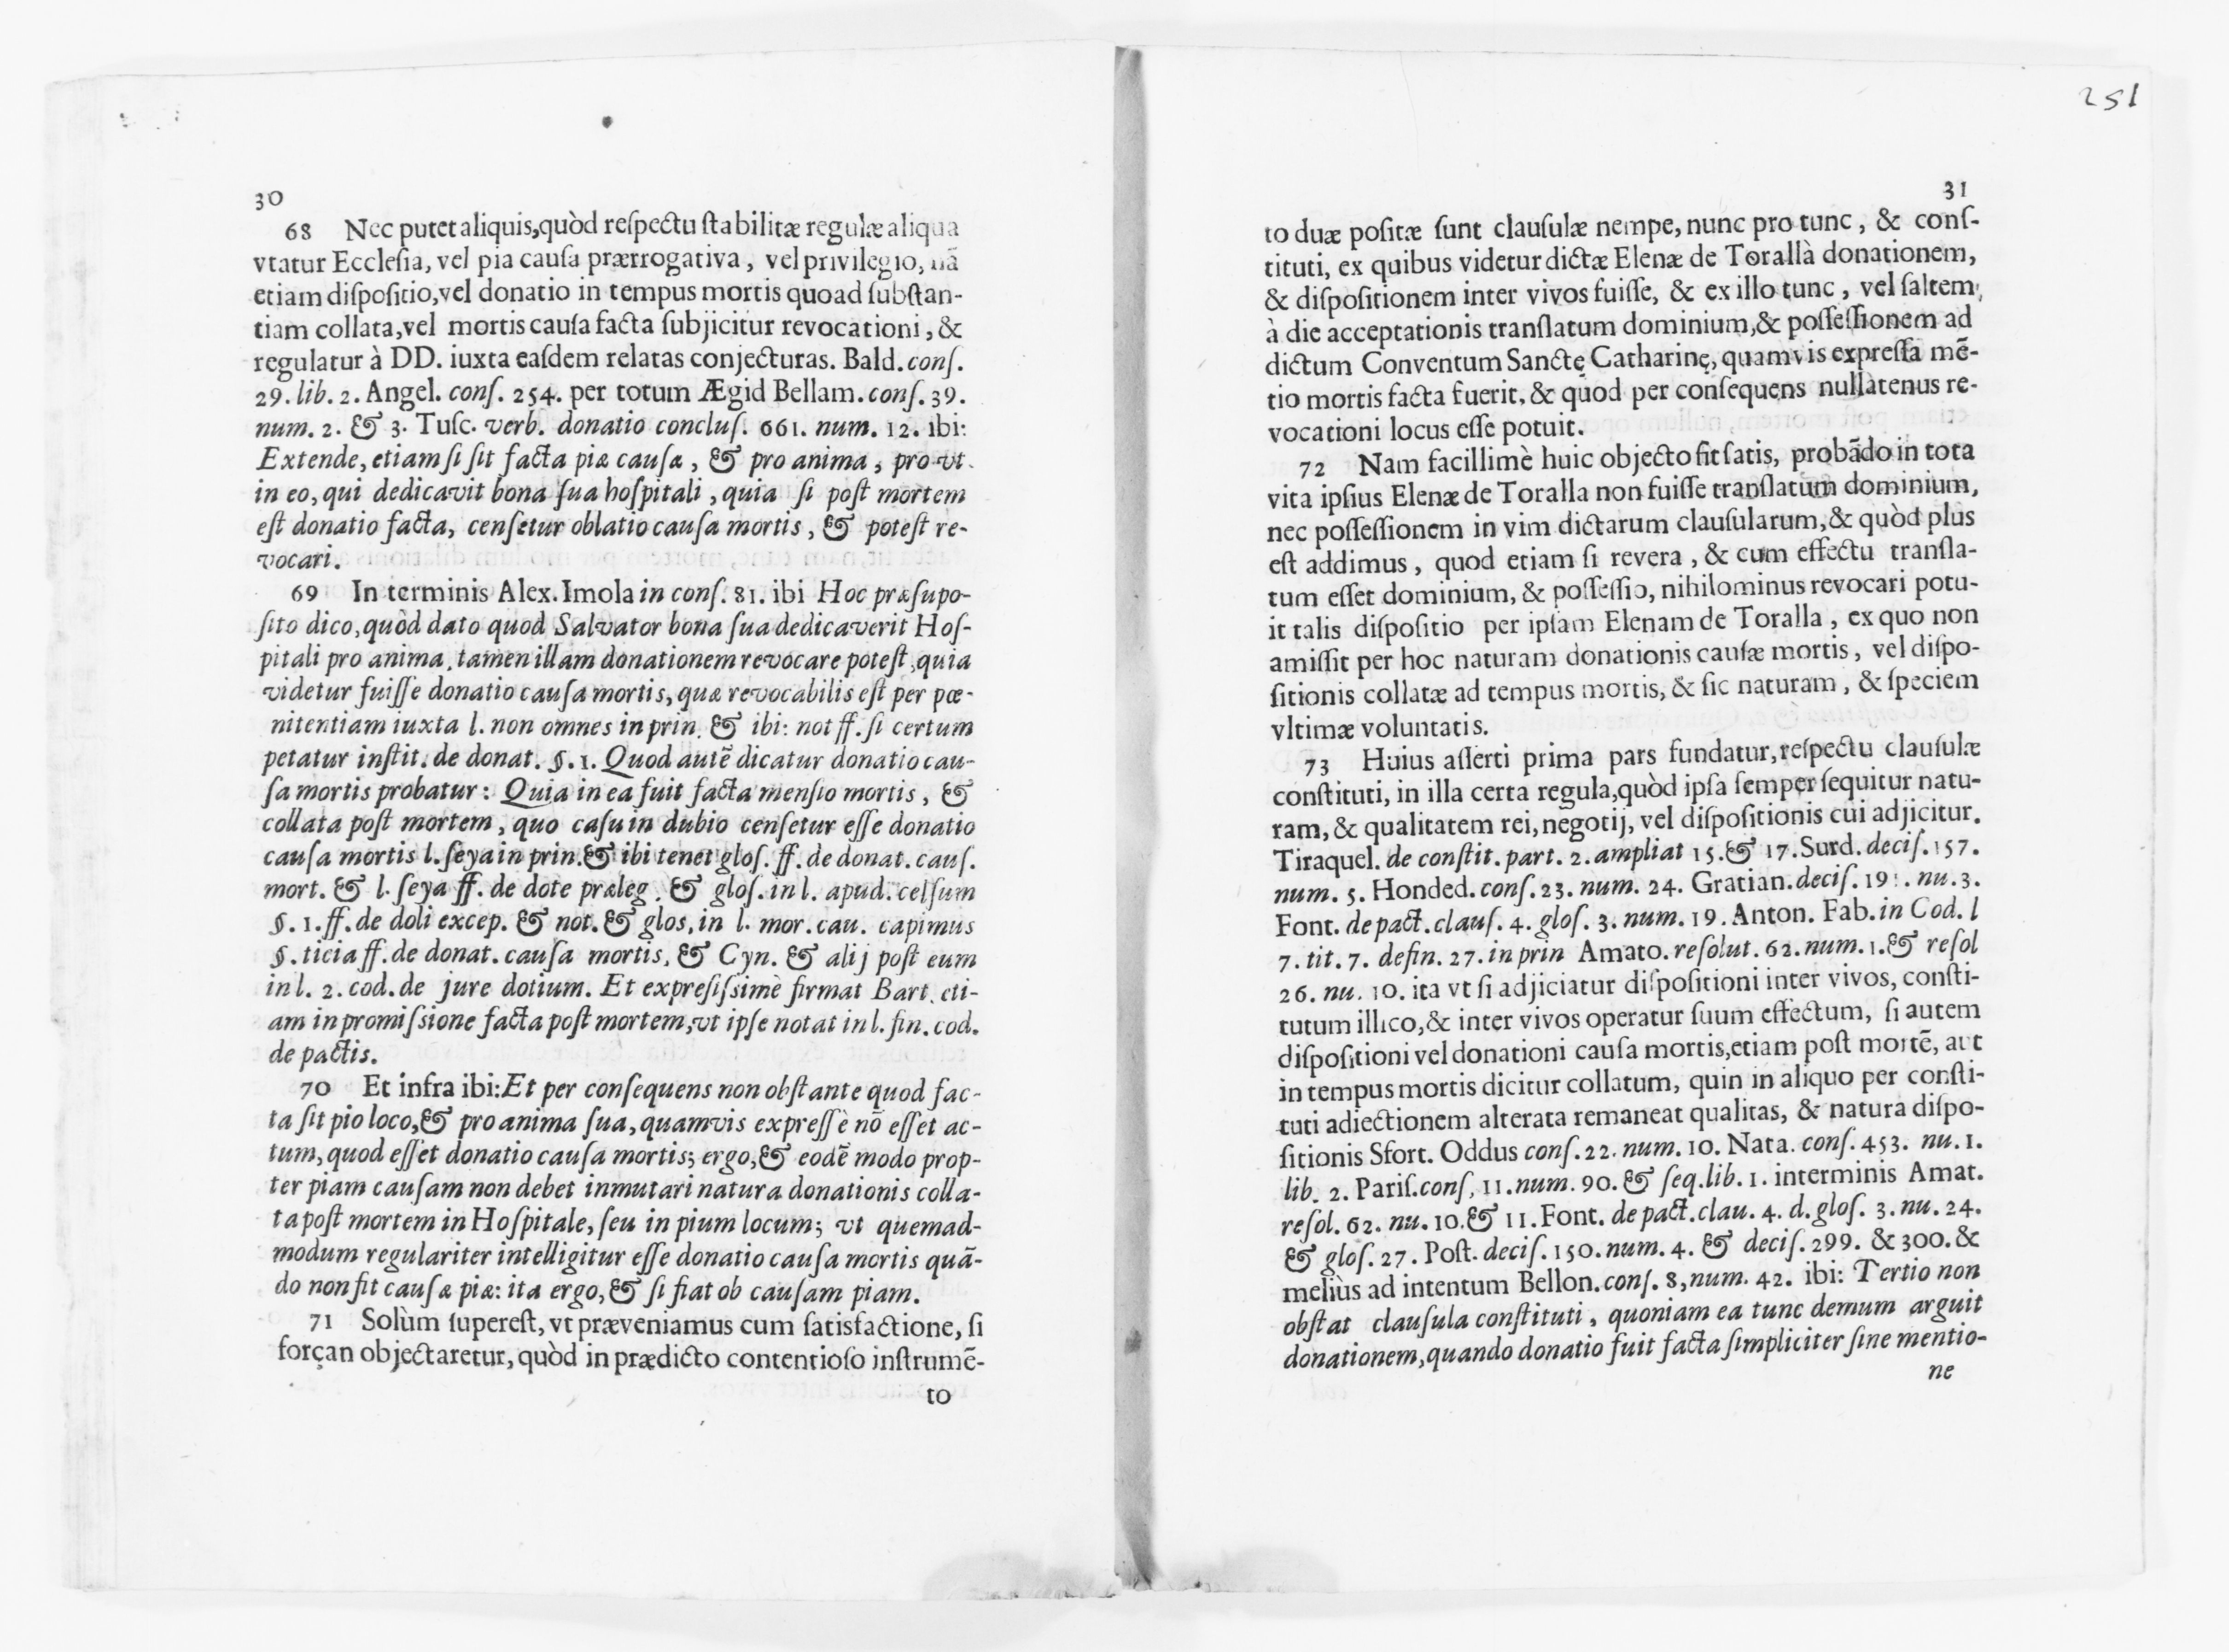 30
68 Nec putet aliquis, quòd reſpectu ſtabilitæ regulæ aliqua
vtatur Eccleſia, vel pia cauſa prærrogativa, vel privilegio, nã
etiam diſpoſitio, vel donatio in tempus mortis quoad ſubſtan-
tiam collata, vel mortis cauſa facta ſubjicitur revocationi, &
regulatur à DD. iuxta eaſdem relatas conjecturas. Bald. conſ.
29. lib. 2. Angel. conſ. 254. per totum Ægid Bellam. conſ. 39.
num. 2. & 3. Tuſc. verb. donatio concluſ. 661. num. 12. ibi:
Extende, etiam ſi ſit facta piæ cauſæ, & pro anima, pro vt
in eo, qui dedicavit bona ſua hoſpitali, quia ſi poſt mortem
eſt donatio facta, cenſetur oblatio cauſa mortis, & poteſt re-
vocari.
69 In terminis Alex. Imola in conſ. 81. ibi Hoc præſupo-
ſito dico, quòd dato quod Salvator bona ſua dedicaverit Hoſ-
pitali pro anima, tamen illam donationem revocare poteſt, quia
videtur fuiſſe donatio cauſa mortis, quæ revocabilis eſt per pœ-
nitentiam iuxta l. non omnes in prin. & ibi: not ff. ſi certum
petatur inſtit. de donat. §. 1. Quod autẽ dicatur donatio cau-
ſa mortis probatur: Quia in ea fuit facta menſio mortis, &
collata poſt mortem, quo caſu in dubio cenſetur eſſe donatio
cauſa mortis l. ſeya in prin. & ibi tenet gloſ. ff. de donat. cauſ.
mort. & l. ſeya ff. de dote præleg. & gloſ. in l. apud. celſum
§. 1. ff. de doli excep. & not. & glos, in l. mor. cau. capimus
§. ticia ff. de donat. cauſa mortis, & Cyn. & alij poſt eum
in l. 2. cod. de jure dotium. Et expreſiſsimè firmat Bart. eti-
am in promiſsione facta poſt mortem, vt ipſe notat in l. fin. cod.
de pactis.
70 Et infra ibi: Et per conſequens non obſtante quod fac-
ta ſit pio loco, & pro anima ſua, quamvis expreſſè nõ eſſet ac-
tum, quod eſſet donatio cauſa mortis; ergo, & eodẽ modo prop-
ter piam cauſam non debet inmutari natura donationis colla-
ta poſt mortem in Hoſpitale, ſeu in pium locum; vt quemad-
modum regulariter intelligitur eſſe donatio cauſa mortis quã-
do non fit cauſæ piæ: ita ergo, & ſi fiat ob cauſam piam.
71 Solùm ſupereſt, vt præveniamus cum ſatisfactione, ſi
forçan objectaretur, quòd in prædicto contentioſo inſtrumẽ-
to
251
31
to duæ poſitæ ſunt clauſulæ nempe, nunc pro tunc, & conſ-
tituti, ex quibus videtur dictæ Elenæ de Torallà donationem,
& diſpoſitionem inter vivos fuiſſe, & ex illo tunc, vel ſaltem,
à die acceptationis tranſlatum dominium, & poſſeſſionem ad
dictum Conventum Sanctę Catharinę, quamvis expreſſa mẽ-
tio mortis facta fuerit, & quod per conſequens nullatenus re-
vocationi locus eſſe potuit.
72 Nam facillimè huic objecto fit ſatis, probãdo in tota
vita ipſius Elenæ de Toralla non fuiſſe tranſlatum dominium,
nec poſſeſſionem in vim dictarum clauſularum, & quòd plus
eſt addimus, quod etiam ſi revera, & cum effectu tranſla-
tum eſſet dominium, & poſſeſſio, nihilominus revocari potu-
it talis diſpoſitio per ipſam Elenam de Toralla, ex quo non
amiſſit per hoc naturam donationis cauſæ mortis, vel diſpo-
ſitionis collatæ ad tempus mortis, & ſic naturam, & ſpeciem
vltimæ voluntatis.
73 Huius aſſerti prima pars fundatur, reſpectu clauſulæ
conſtituti, in illa certa regula, quòd ipſa ſemper ſequitur natu-
ram, & qualitatem rei, negotij, vel diſpoſitionis cui adjicitur.
Tiraquel. de conſtit. part. 2. ampliat 15. & 17. Surd. deciſ. 157.
num. 5. Honded. conſ. 23. num. 24. Gratian. deciſ. 19 . nu. 3.
Font. de pact. clauſ. 4. gloſ. 3. num. 19. Anton. Fab. in Cod. l
7. tit. 7. defin. 27. in prin Amato. reſolut. 62. num. 1. & reſol
26. nu. 10. ita vt ſi adjiciatur diſpoſitioni inter vivos, conſti-
tutum illico, & inter vivos operatur ſuum effectum, ſi autem
diſpoſitioni vel donationi cauſa mortis, etiam poſt mortẽ, aut
in tempus mortis dicitur collatum, quin in aliquo per conſti-
tuti adiectionem alterata remaneat qualitas, & natura diſpo-
ſitionis Sfort. Oddus conſ. 22. num. 10. Nata. conſ. 453. nu. 1.
lib. 2. Pariſ. conſ, 11. num. 90. & ſeq. lib. 1. interminis Amat.
reſol. 62. nu. 10. & 11. Font. de pact. clau. 4. d. gloſ. 3. nu. 24.
& gloſ. 27. Poſt. deciſ. 150. num. 4. & deciſ. 299. & 300. &
meliùs ad intentum Bellon. conſ. 8, num. 42. ibi: Tertio non
obſtat clauſula conſtituti, quoniam ea tunc demum arguit
donationem, quando donatio fuit facta ſimpliciter ſine mentio-
ne